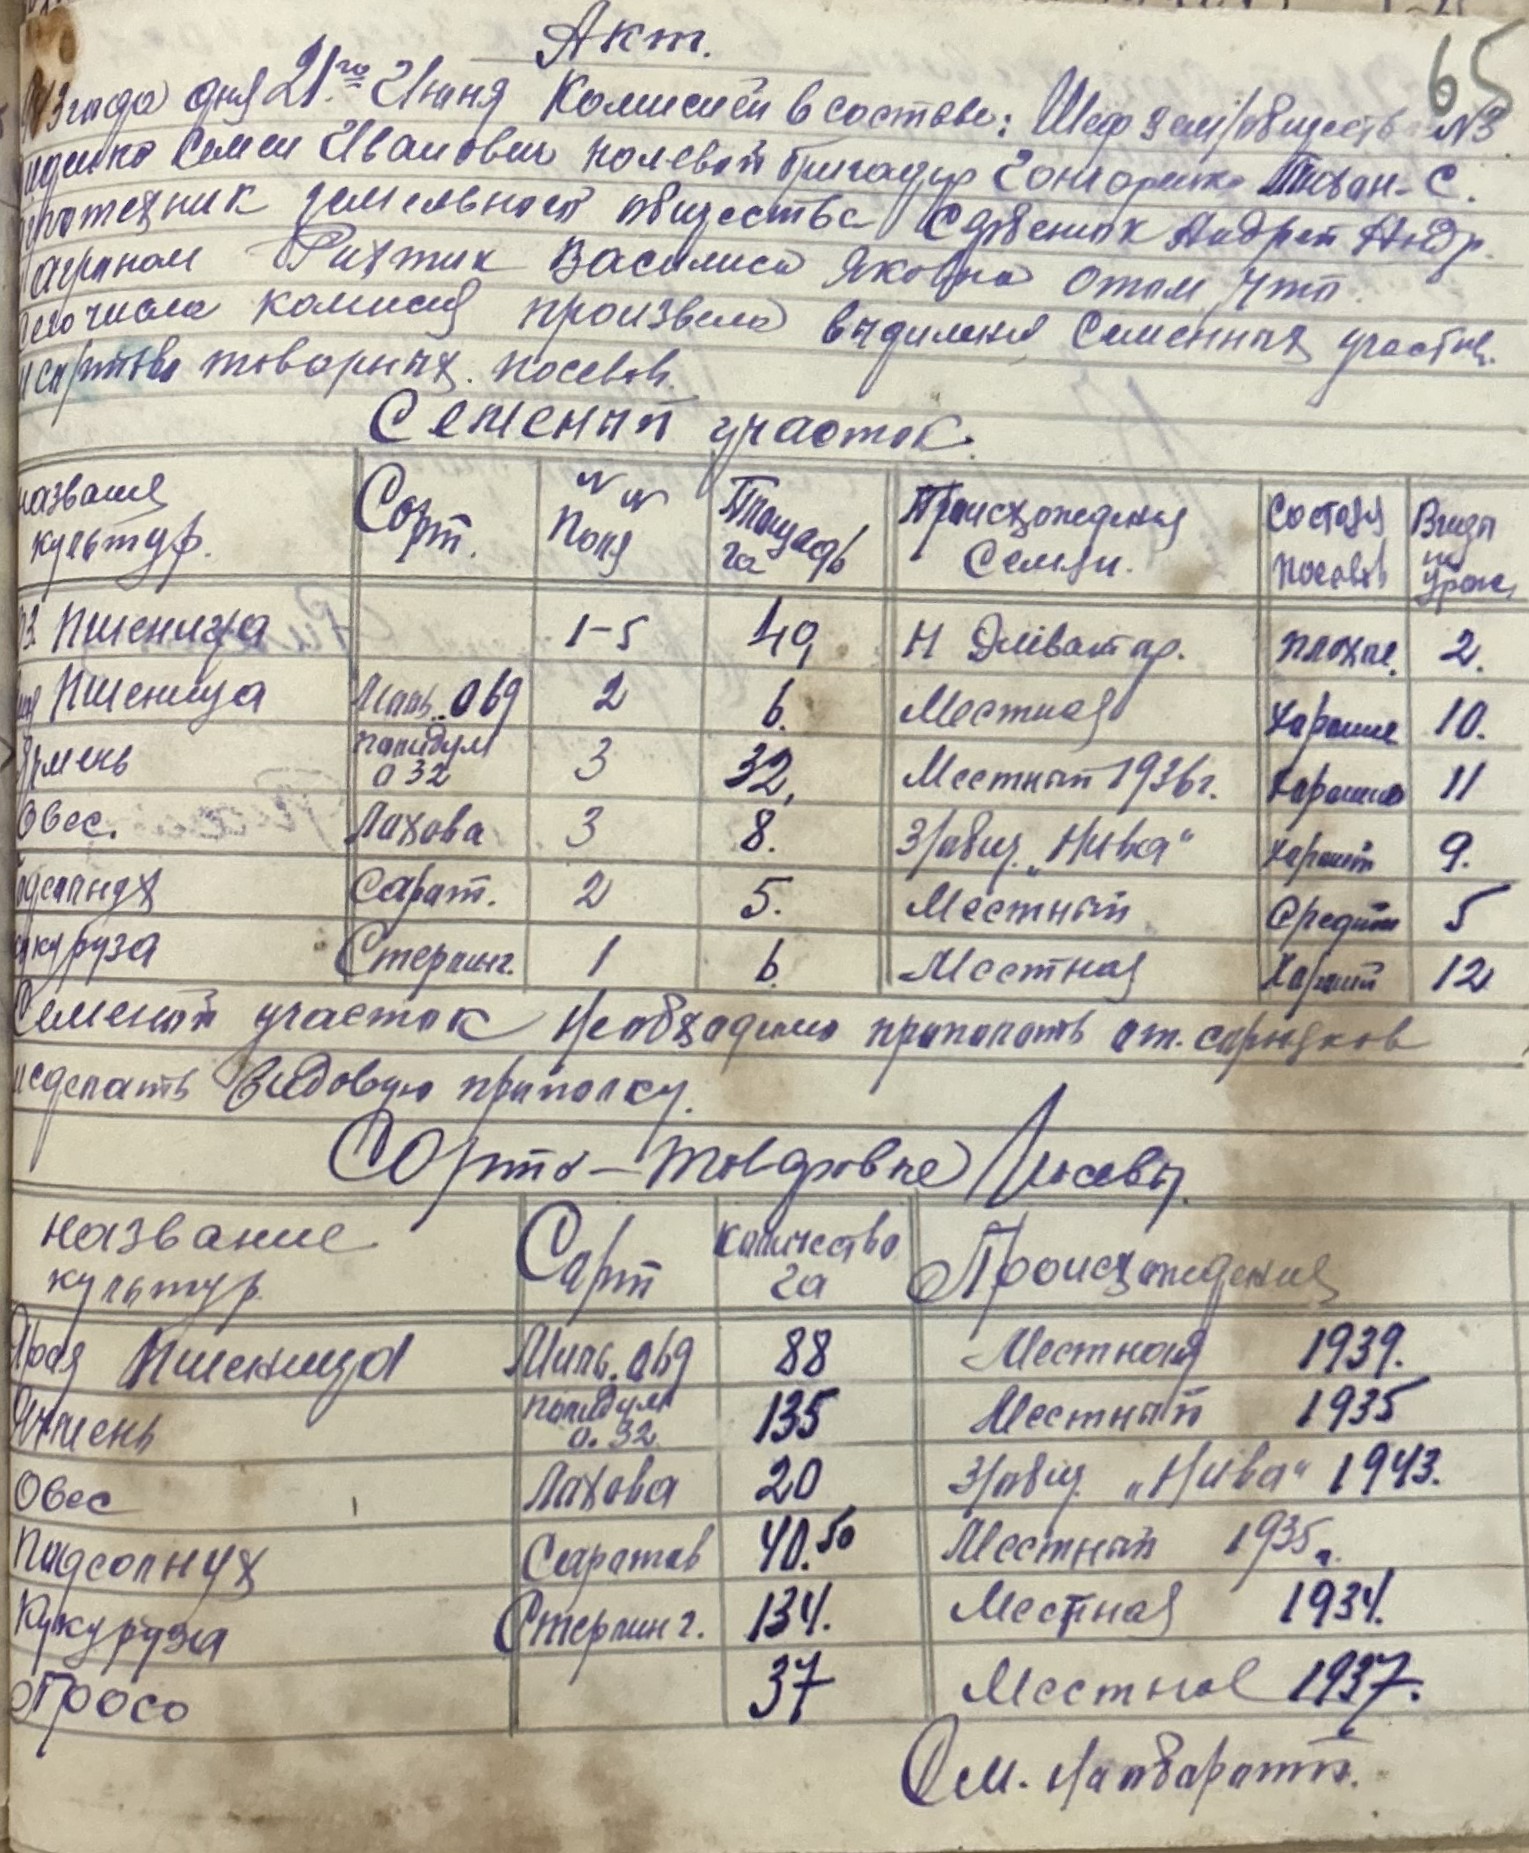 Акт.
65
3 года дня 21го Июня Комисией в составе: Шеф зем/обществ N3
Семен Иванович полевой бригадир Гонгоренко Тихон С.
земельного общества Андрей Андр.
Рихтик Василиса Яковна о том что
числа комисия произвела выдиления семенных участк.
и сортово товарных посевов.
Семеный участок.
название культур. Сорт. NN поля Площадь га Происхождения Семян. Состоян посевов Виды на урож.
Пшеница 1-5 49, Н плохие 2.
Пшеница Мить. 069 2 6. Местная харошие 10.
ячмень палидум 032 3 32, Местный 1936г. харошие 11
Овес. Лахова 3 8. З/общ. „Нива" хароший 9.
подсолнух Сарат. 2 5. Местный средний 5
кукуруза Стерлинг. 1 6. Местная хароший 12
Семеной участок необходимо прополоть от сорняков
и сделать видовую прополку.
Сорто-товаровые Посевы.
название культур. Сорт количество га Происхождения
Ярая Пшеница Мить. 069 88 Местная 1939.
Ячмень палидум 0.32 135 Местный 1935
Овес Лахова 20 З/общ. „Нива" 1943.
Падсолнух Саратов 40.50 Местный 1935г.
Кукуруза Стерлинг. 134. Местная 1934.
Просо 37 Местное 1937.
См. на обароте.